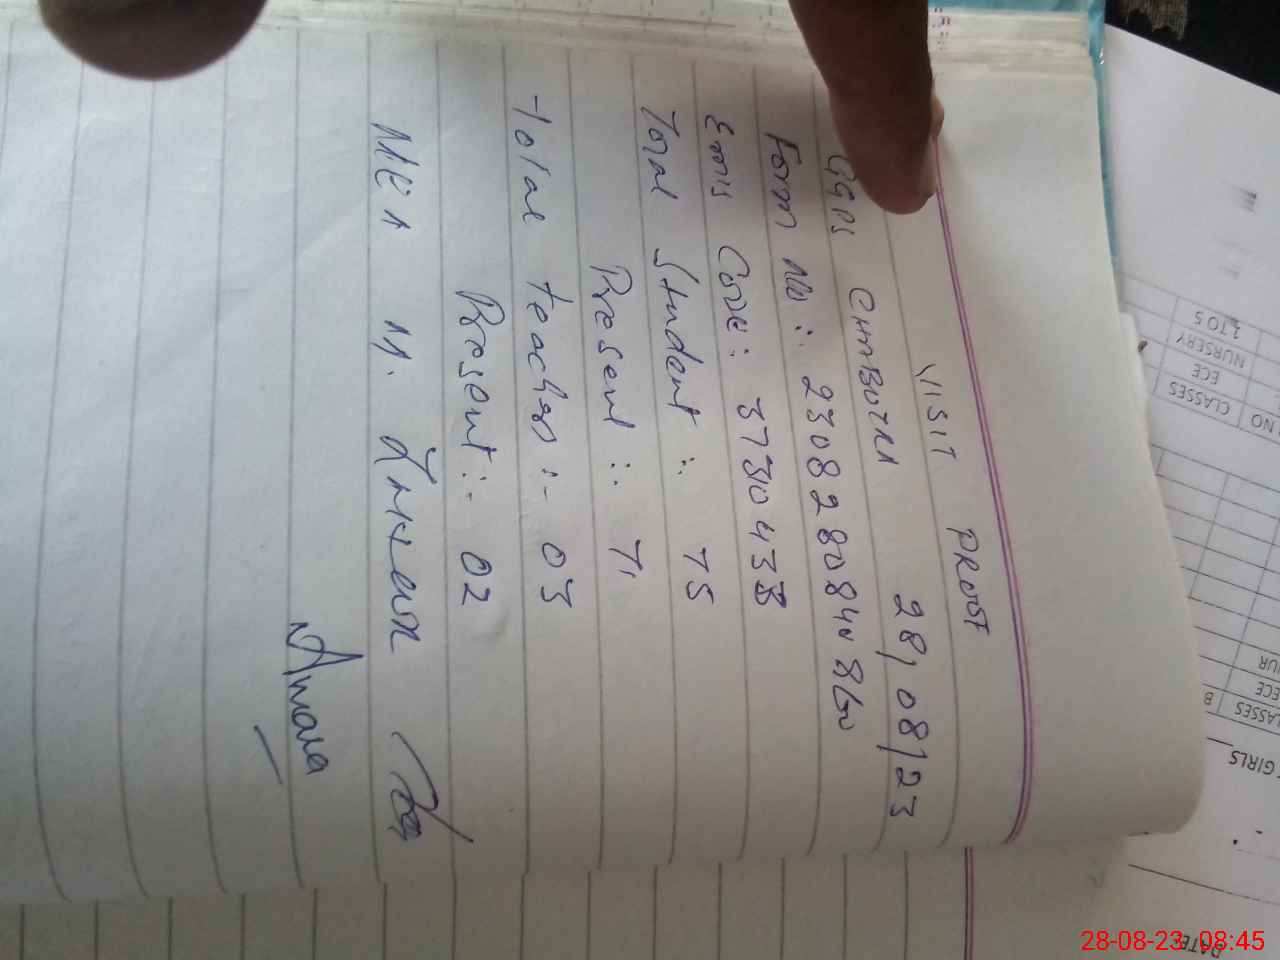 VISIT PROOF
28/08/23
GGPS CHMBOTRA
Form No:. 2308280840
Emis Code: 37310433
Total Student :. 75
Present :. 71
Total teacher :- 03
Present :- 02
MEA M.
Amara
CLASSES
ECE
NURSERY
1 TO 5
NO
CLASSES
ECE
GIRLS
DATE
28-08-23 08:45